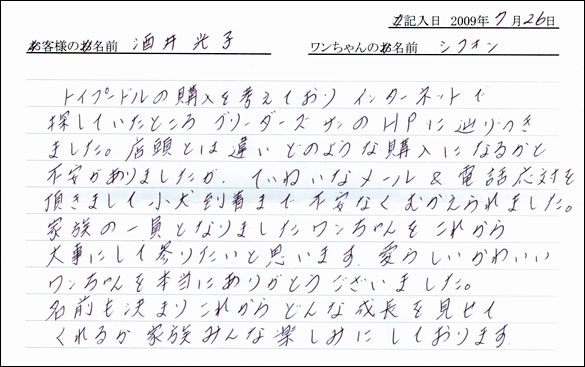 ご記入日 2009年7月26日
お客様のお名前 酒井光子 ワンちゃんのお名前 シフォン
トイプードルの購入を考えており インターネットで
探していたところ ブリーダーズ の HPに辿りつき
ました。店頭とは違い どのような購入になるかと
不安がありましたが、ていねいなメール & 電話応対を
頂きまして 小犬到着まで 不安なく むかえられました。
家族の一員となりましたワンちゃんを これから
大事にして参りたいと思います。愛らしいかわいい
ワンちゃんを 本当にありがとうございました。
名前も決まり これから どんな成長を見せて
くれるか 家族みんな楽しみに しております。